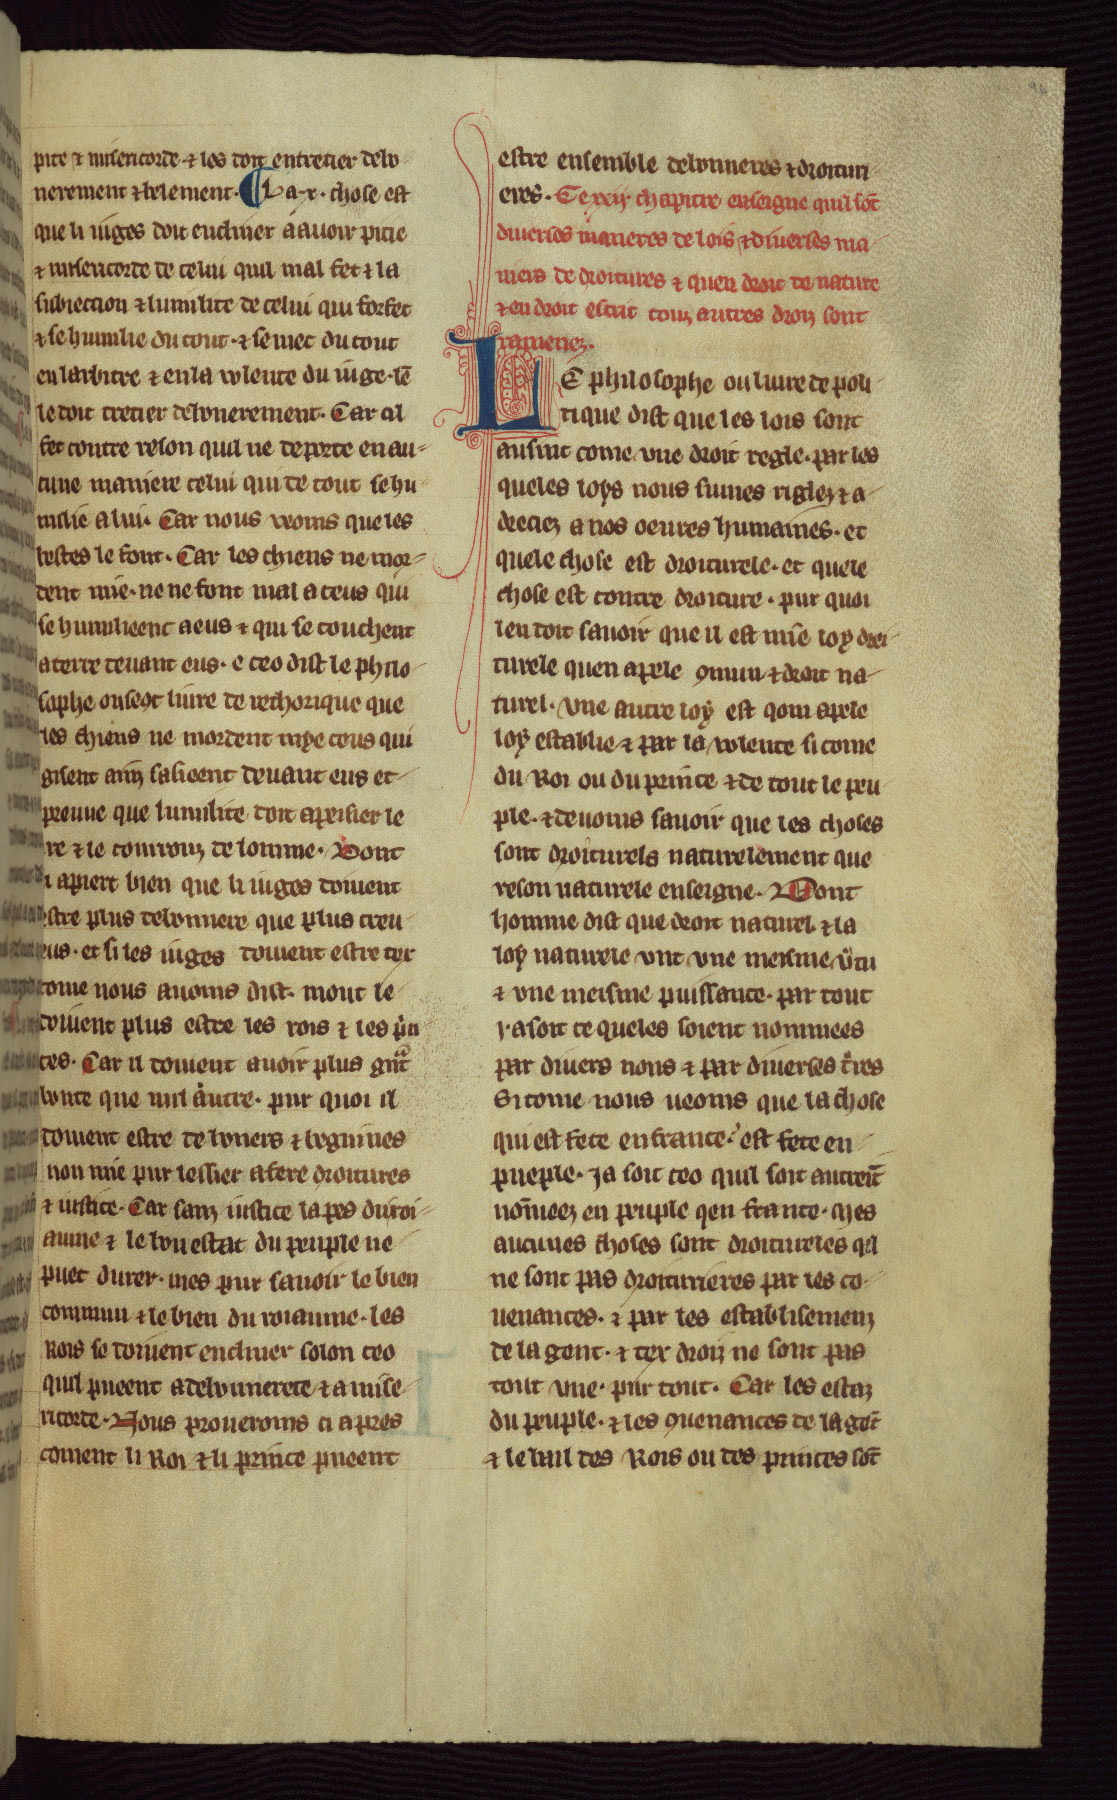 pite & misericorde · & les doit entretier debo
nerement & belement · La · x · chose est
que li iuges doit encliner a auoir pitie
& misericorde de celui quil mal fet & la
subiection & lumilite de celui qui forfet
& se humilie du tout · & se met du tout
en larbitre & en la volente du iuge · len
le doit tretier debonerement · Car cil
fet contre reson quil ne deporte en au-
cune maniere celui qui de tout se hu
milie a lui · Car nous veoms que les
bestes le font · Car les chiens ne mor-
dent mie · ne ne font mal a ceus qui
se humilieent a eus & qui se couchent
a terre deuant eus · e ceo dist le philo-
sophe ou secont liure de rethorique que
les chiens ne mordent mye ceus qui
gisent ainz salieent deuant eus et-
preuue que lumilite doit apeisier le
re & le courrouz de lomme · Dont
i apiert bien que li iuges doiuent
estre plus debonnere que plus creu
eus · et si les iuges doiuent estre tex
come nous auoms dist · mout le
doiuent plus estre les rois & les prin
ces · Car il doiuent auoir plus grant
bonte que nul autre · pur quoi il
doiuent estre deboners & begnines
non mie pur lessier a fere droitures
& iustice · Car sanz iustice la pes du roi-
aume & le bon estat du peuple ne
puet durer · mes pur sauoir le bien
commun & le bien du roiaume · les
Rois se doiuent encliner solon ceo
quil pueent a debonerete & a mise
ricorde · Nous proueroms ci apres
coment li Roi & li prince pueent
estre ensemble debonneres & droituri
eres · Ce xxij chapitre enseigne quil sont
diuerses manieres de lois & diuerses ma-
niers de droitures & quen droit de nature
& en droit escrit touz autres droiz sont
ramenez ·
LE philosophe ou liure de poli-
tique dist que les lois sont
ausint come vne droit regle · par les
queles loys nous sumes riglez & a-
dreciez a nos oeures humaines · et
quele chose est droiturele · et quele
chose est contre droiture · pur quoi
len doit sauoir que il est une loy droi-
turele quen apele 9mun & droit na-
turel · Vne autre loy est qom apele
loy establie & par la volente si come
du Roi ou du prince & de tout le peu
ple · & deuoms sauoir que les choses
sont droiturels naturelement que
reson naturele enseigne · Dont
homme dist que droit naturel & la
loy naturele vnt vne meisme vertu
& vne meisme puissance · par tout
ja soit ce queles soient nommees
par diuers nons & par diuerses terres
Si come nous veoms que la chose
qui est fete en france · est fete en-
pueple · Ja soit ceo quil soit autrement
nommeez en peuple qen france · Mes
aucunes choses sont droitureles qil
ne sont pas droiturieres par les co-
uenances · & par les establisemenz
de la gent · & tex droiz ne sont pas
tout vne · par tout · Car les estaz
du peuple · & les 9uenances de la gent
& le bail des Rois ou des princes sont